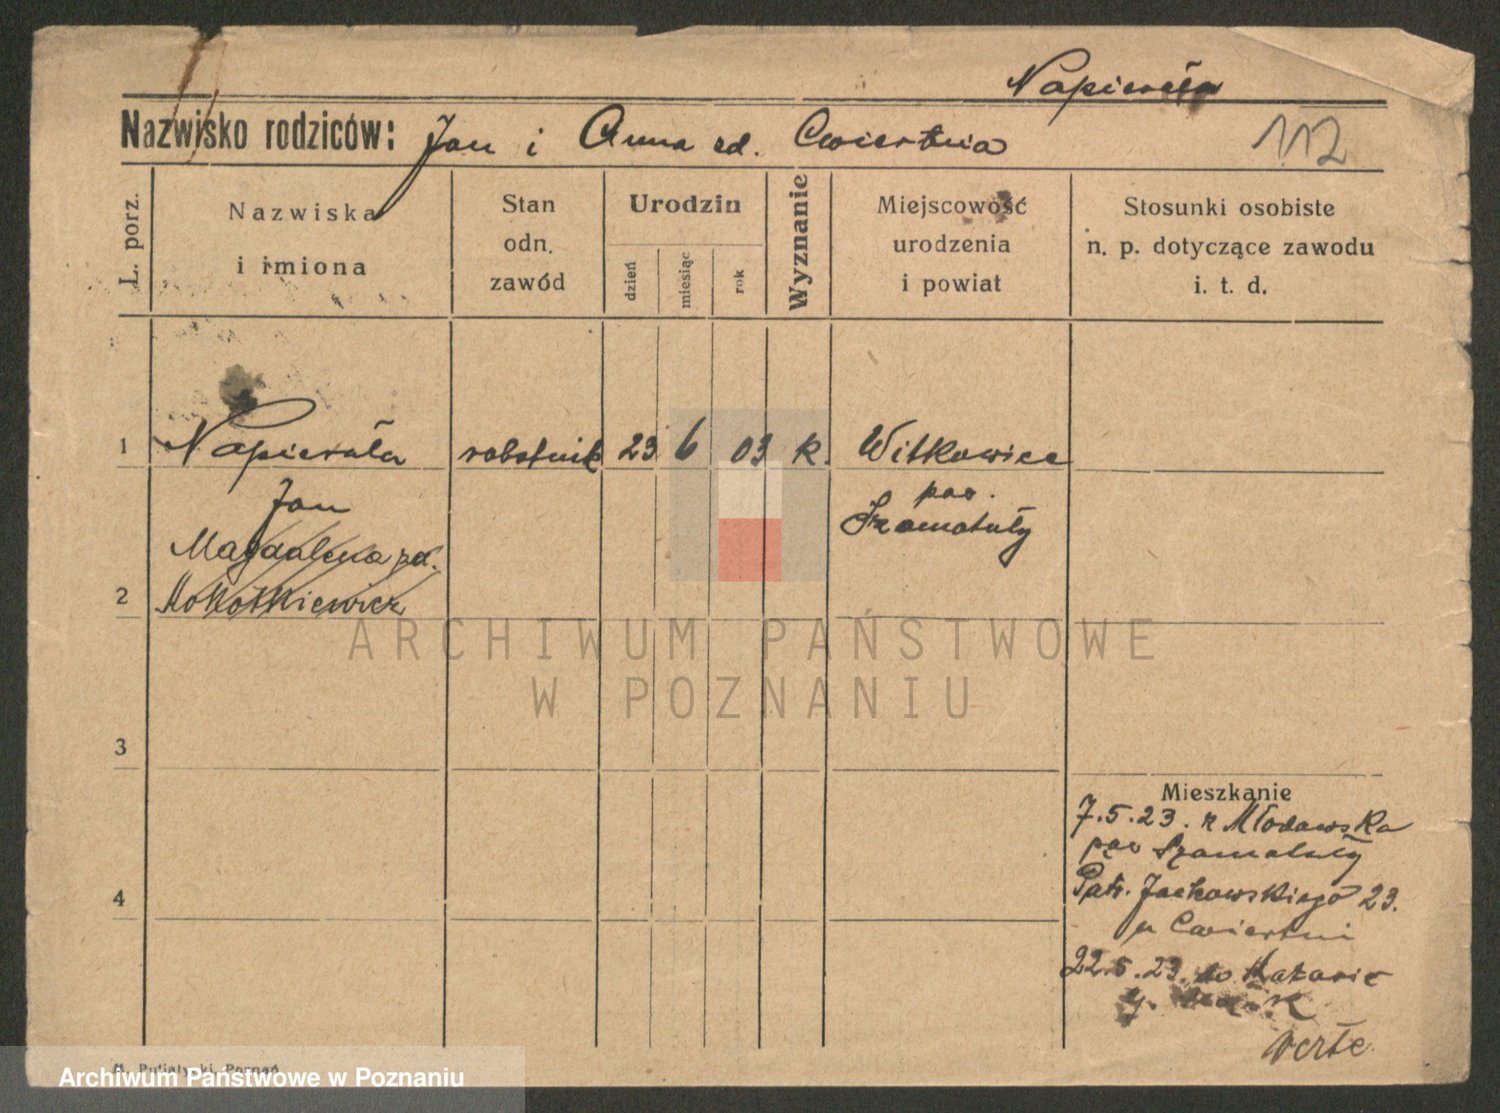 Napierała
Nazwisko rodziców: Jan i Anna zd. Cwiertnia
112
L. porz.
Nazwiska
i imiona
Stan
odn.
zawód
Urodzin
dzień
miesiąc
rok
Wyznanie
Miejscowość
urodzenia
i powiat
Stosunki osobiste
n. p. dotyczące zawodu
i. t. d.
1 Napierała robotnik 23 6 03 k. Witkowice
Jan
pow.
Szamotuły
Magdalena zd.
2
3
4
Mieszkanie
7.5.23. z Młodawska
pow Szamotuły
Patr. Jackowskiego 23.
u Cwiertni
22.5.23. do
verte
ARCHIWUM PAŃSTWOWE
W POZNANIU
Poznań
Archiwum Państwowe w Poznaniu